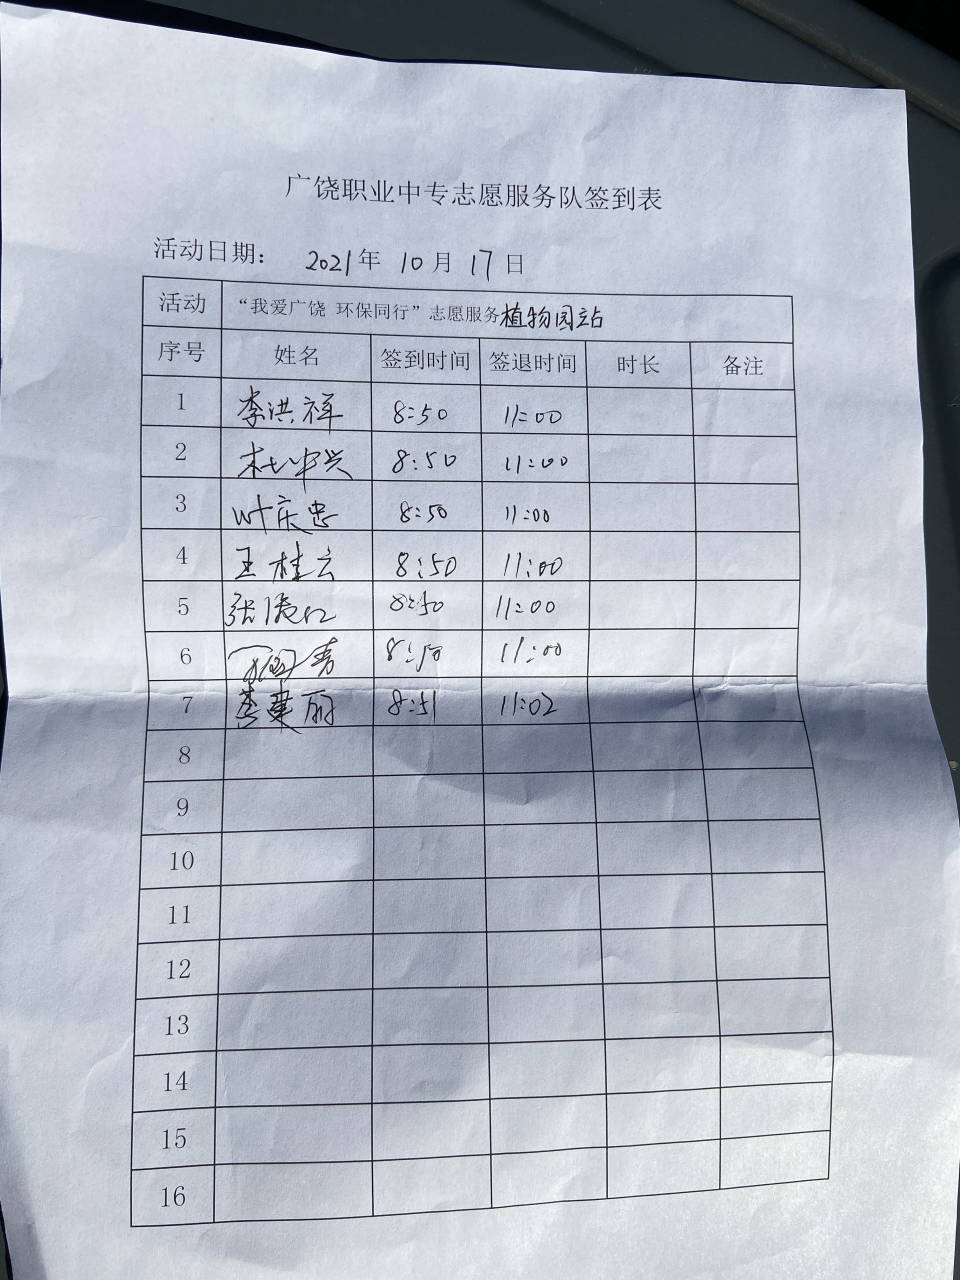 广饶职业中专志愿服务队签到表
活动日期： 2021年 10月 17日
活动 “我爱广饶 环保同行”志愿服务植物园站
序号 姓名 签到时间 签退时间 时长 备注
1 李洪祥 8:50 11:00
2 杜中兴 8:50 11:00
3 叶庆忠 8:50 11:00
4 王桂云 8:50 11:00
5 张 8:50 11:00
6 8:50 11:00
7 李建丽 8:51 11:02
8
9
10
11
12
13
14
15
16